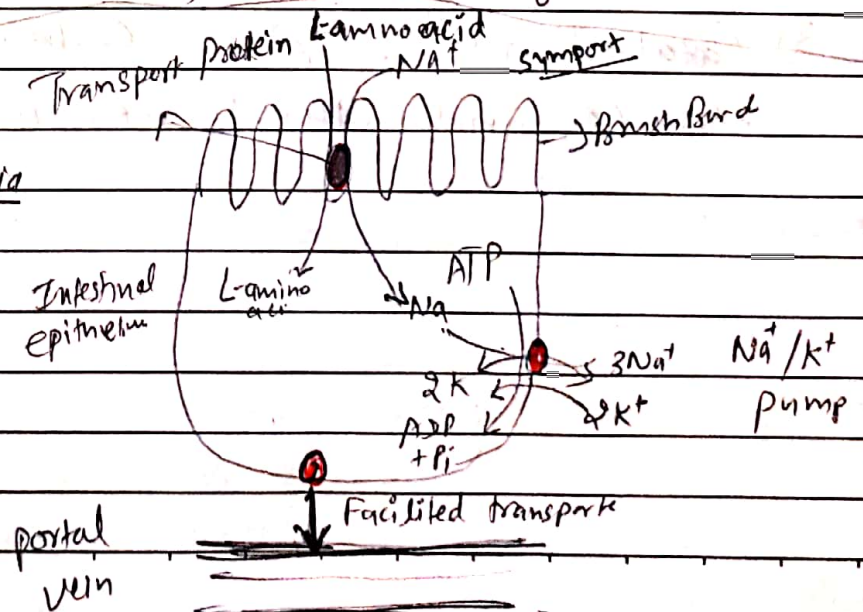 L-amno acid
Transport Protein
Na⁺
symport
Brush Bord
Intestinal
epithelium
L-amino
aci
Na
ATP
3Na⁺
Na⁺/K⁺
pump
2K
2K⁺
ADP
+ Pi
Facilited transporte
portal
vein